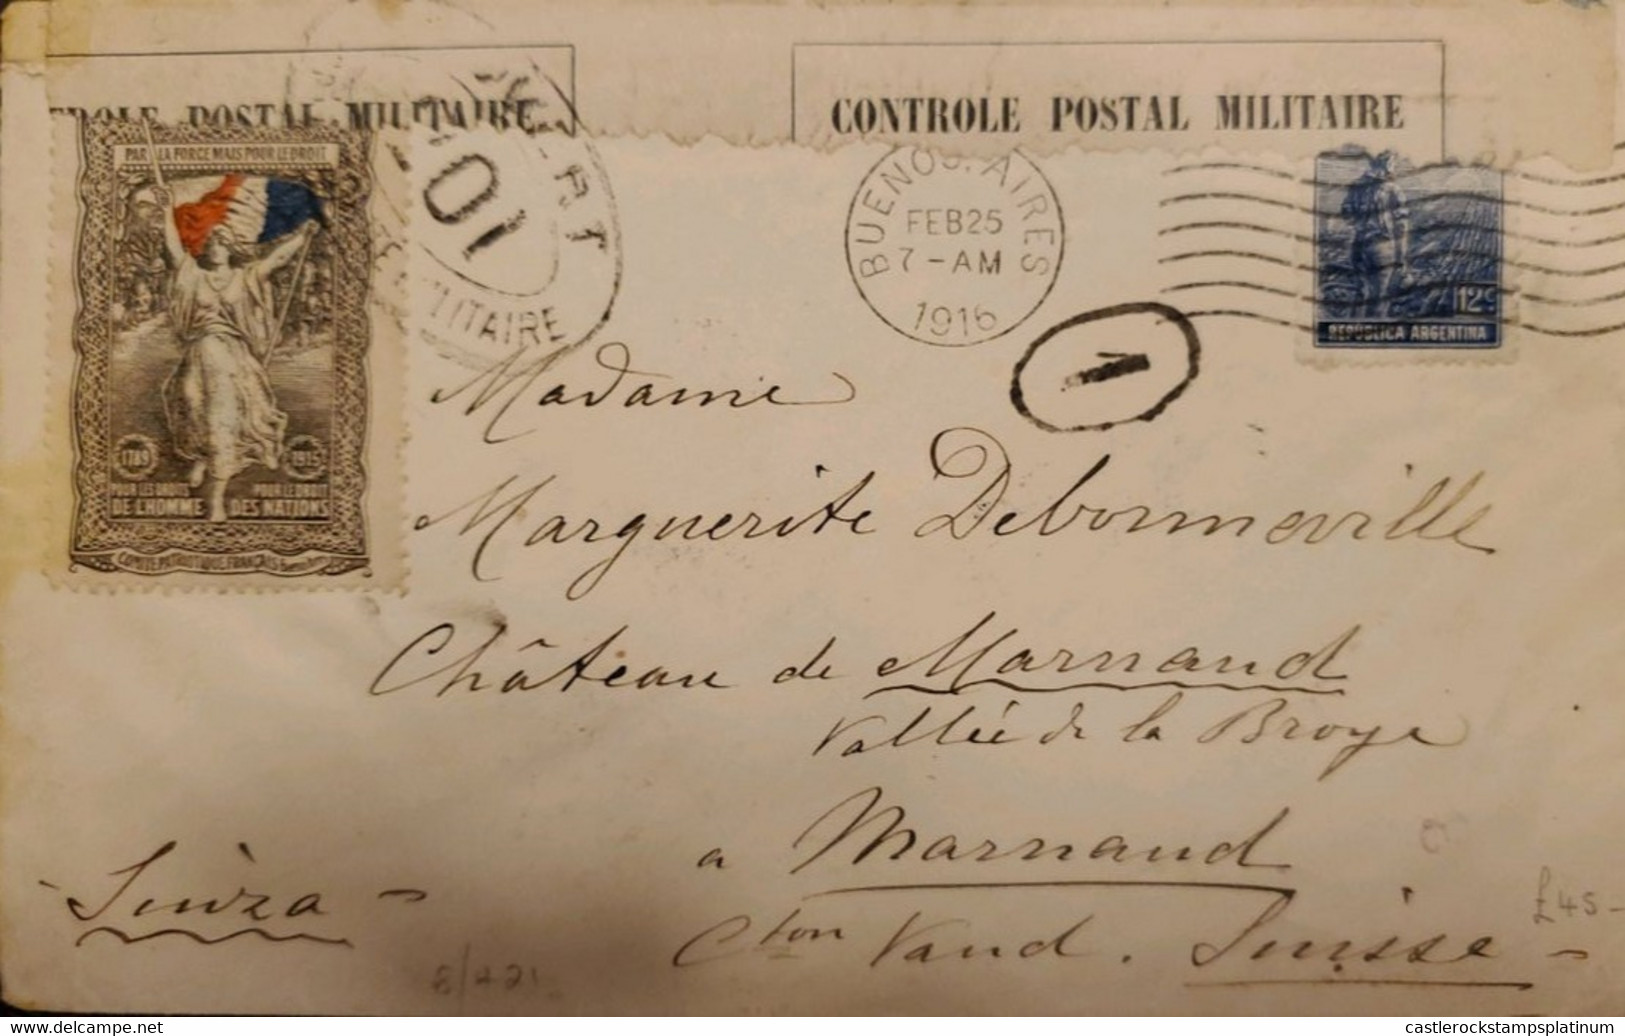 CONTROLE POSTAL MILITAIRE
POSTAL MILITAIRE
PAR LA FORCE MAIS POUR LE DROIT
OUVERT
MILITAIRE
BUENOS AIRES
FEB 25
7-AM
1916
1
12c
REPUBLICA ARGENTINA
1789 1915
POUR LES DROITS POUR LE DROIT
DE L'HOMME DES NATIONS
COMITÉ PATRIOTIQUE FRANÇAIS
Madame
Marguerite Debonneville
Château de Marnand
Vallée de la Broye
a Marnand
Cton Vaud. Suisse
Suiza
£45-
castlerockstampsplatinum